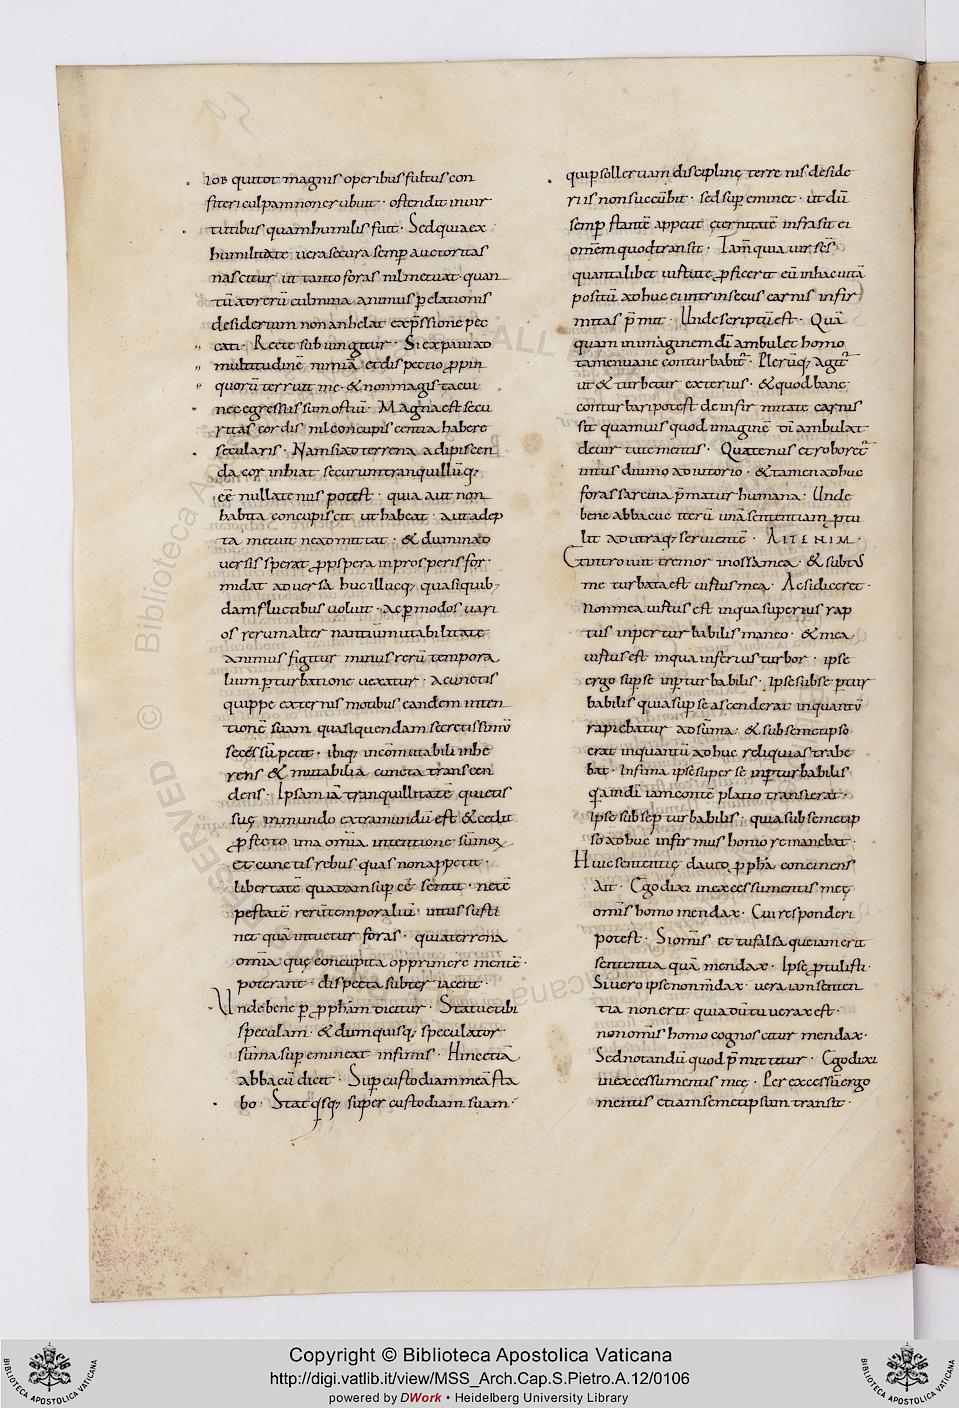 iob qui tot magnis operibus fultus con
fiteri culpam non erubuit · ostendit in uir
tutibus quam humilis fuit · Sed quia ex
humilitate uera secura semp auctoritas
nascitur ut tanto foras nil metuat quan
tū ad rerū culmina animus p elationis
desiderium non anhelat exp̄ssione pec
cati · Recte subiungitur · Si expaui ad
multitudinē nimiā et dispectio ppin
quorū terruit me · & non magis tacui
nec egressus sum ostiū · Magna est secu
ritas cordis nil concupiscentia habere
secularis · Nam si ad terrena adipiscen
da cor inhiat securum tranquillūq;
eē nullatenus potest · quia aut non
habita concupiscit ut habeat · aut adep
ta metuit ne admittat · & dum in ad
uersis sperat pspera in prosperis for
midat aduersa huc illucq; quasi quib;
dam fluctibus uoluit · ac p modos uari
os rerum alternantium mutabilitate
animus figitur minus rerū tempora
lium pturbatione uexatur · a cunctis
quippe externis motibus eandem inten
tionē suam quasi quendam secretissimū
secessū petit · ibiq; incōmutabili inhe
rens & mutabilia cuncta transcen
dens · Ipsam iā tranquillitatē quietis
suę in mundo extra mundū est & cedit
pfecto ima omīa intentione sūmoꝝ
et cunctis rebus quas non appetit ·
libertatē quadam sup eē sentit · nec tē
pestatē rerū temporaliū · intus susti
net quā intuetur foras · quia terrena
omīa quę concupita opprimere mentē ·
poterant · dispecta subter iacent ·
Unde bene p pphām dicitur · Statue tibi
speculam · & dum quisq; speculator
sūma sup emineat infimis · Hinc etiā
abbacū dicit · Sup custodiam meā sta
bo · Stat qsq; super custodiam suam ·
qui p sollertiam disciplinę terrenis deside
riis non succūbit · sed sup eminet · ut dū
semp stantē appetit ęternitatē infra sit ei
omēm quod transit · Tam quia uir scs
quantalibet uirtute pficerit eū in hac uita
positū adhuc ei intrinsecus carnis infir
mitas p mit · Unde scriptū est · Quā
quam in imaginem di ambulet homo
tamen uane conturbabit · Plerūq; agit
ut & turbetur exterius · & quod hanc
conturbari potest de infirmitate carnis
sit quamuis quod imaginē di ambulat
de uirtute mentis · Quatenus et roboret
intus diuino adiutorio · & tamen adhuc
foras sarcina p matur humana · Unde
bene abbacuc iterū unā sententiam ptu
lit ad utraq; seruientē · AIT ENIM ·
Et introiuit tremor in ossa mea · & subtus
me turbata est uirtus mea · Ac si diceret ·
Non mea uirtus est in qua superius rap
tus inperturbabilis maneo · & mea
uirtus est in qua inferius turbor · ipse
ergo sup se inpturbabilis · Ipse sub se ptur
babilis quia sup se ascenderat in quantū
rapiebatur ad sūma · & sub semetipso
erat in quantū adhuc reliquias trahe
bat · Infima ipse super se inpturbabilis
q̄a in di iam contē platio transierat ·
Ipse sub se p turbabilis · quia sub semetip
so adhuc infirmus homo remanebat ·
Huic sententię dauid p pha concinens
Ait · Ego dixi in excessu mentis meę
omīs homo mendax · Cui responderi
potest · Si omīs et tu falsaque iam erit
sententia quā mendax · Ipse ptulisti ·
Si uero ipse non mdax · uera iam senten
tia non erit quia dū tu uerax es ·
non omīs homo cognoscitur mendax ·
Sed notandū quod p mittitur · Ego dixi
in excessu mentis meę · Per excessū ergo
mentis etiam semetipsum transit ·
Copyright © Biblioteca Apostolica Vaticana
http://digi.vatlib.it/view/MSS_Arch.Cap.S.Pietro.A.12/0106
powered by DWork • Heidelberg University Library